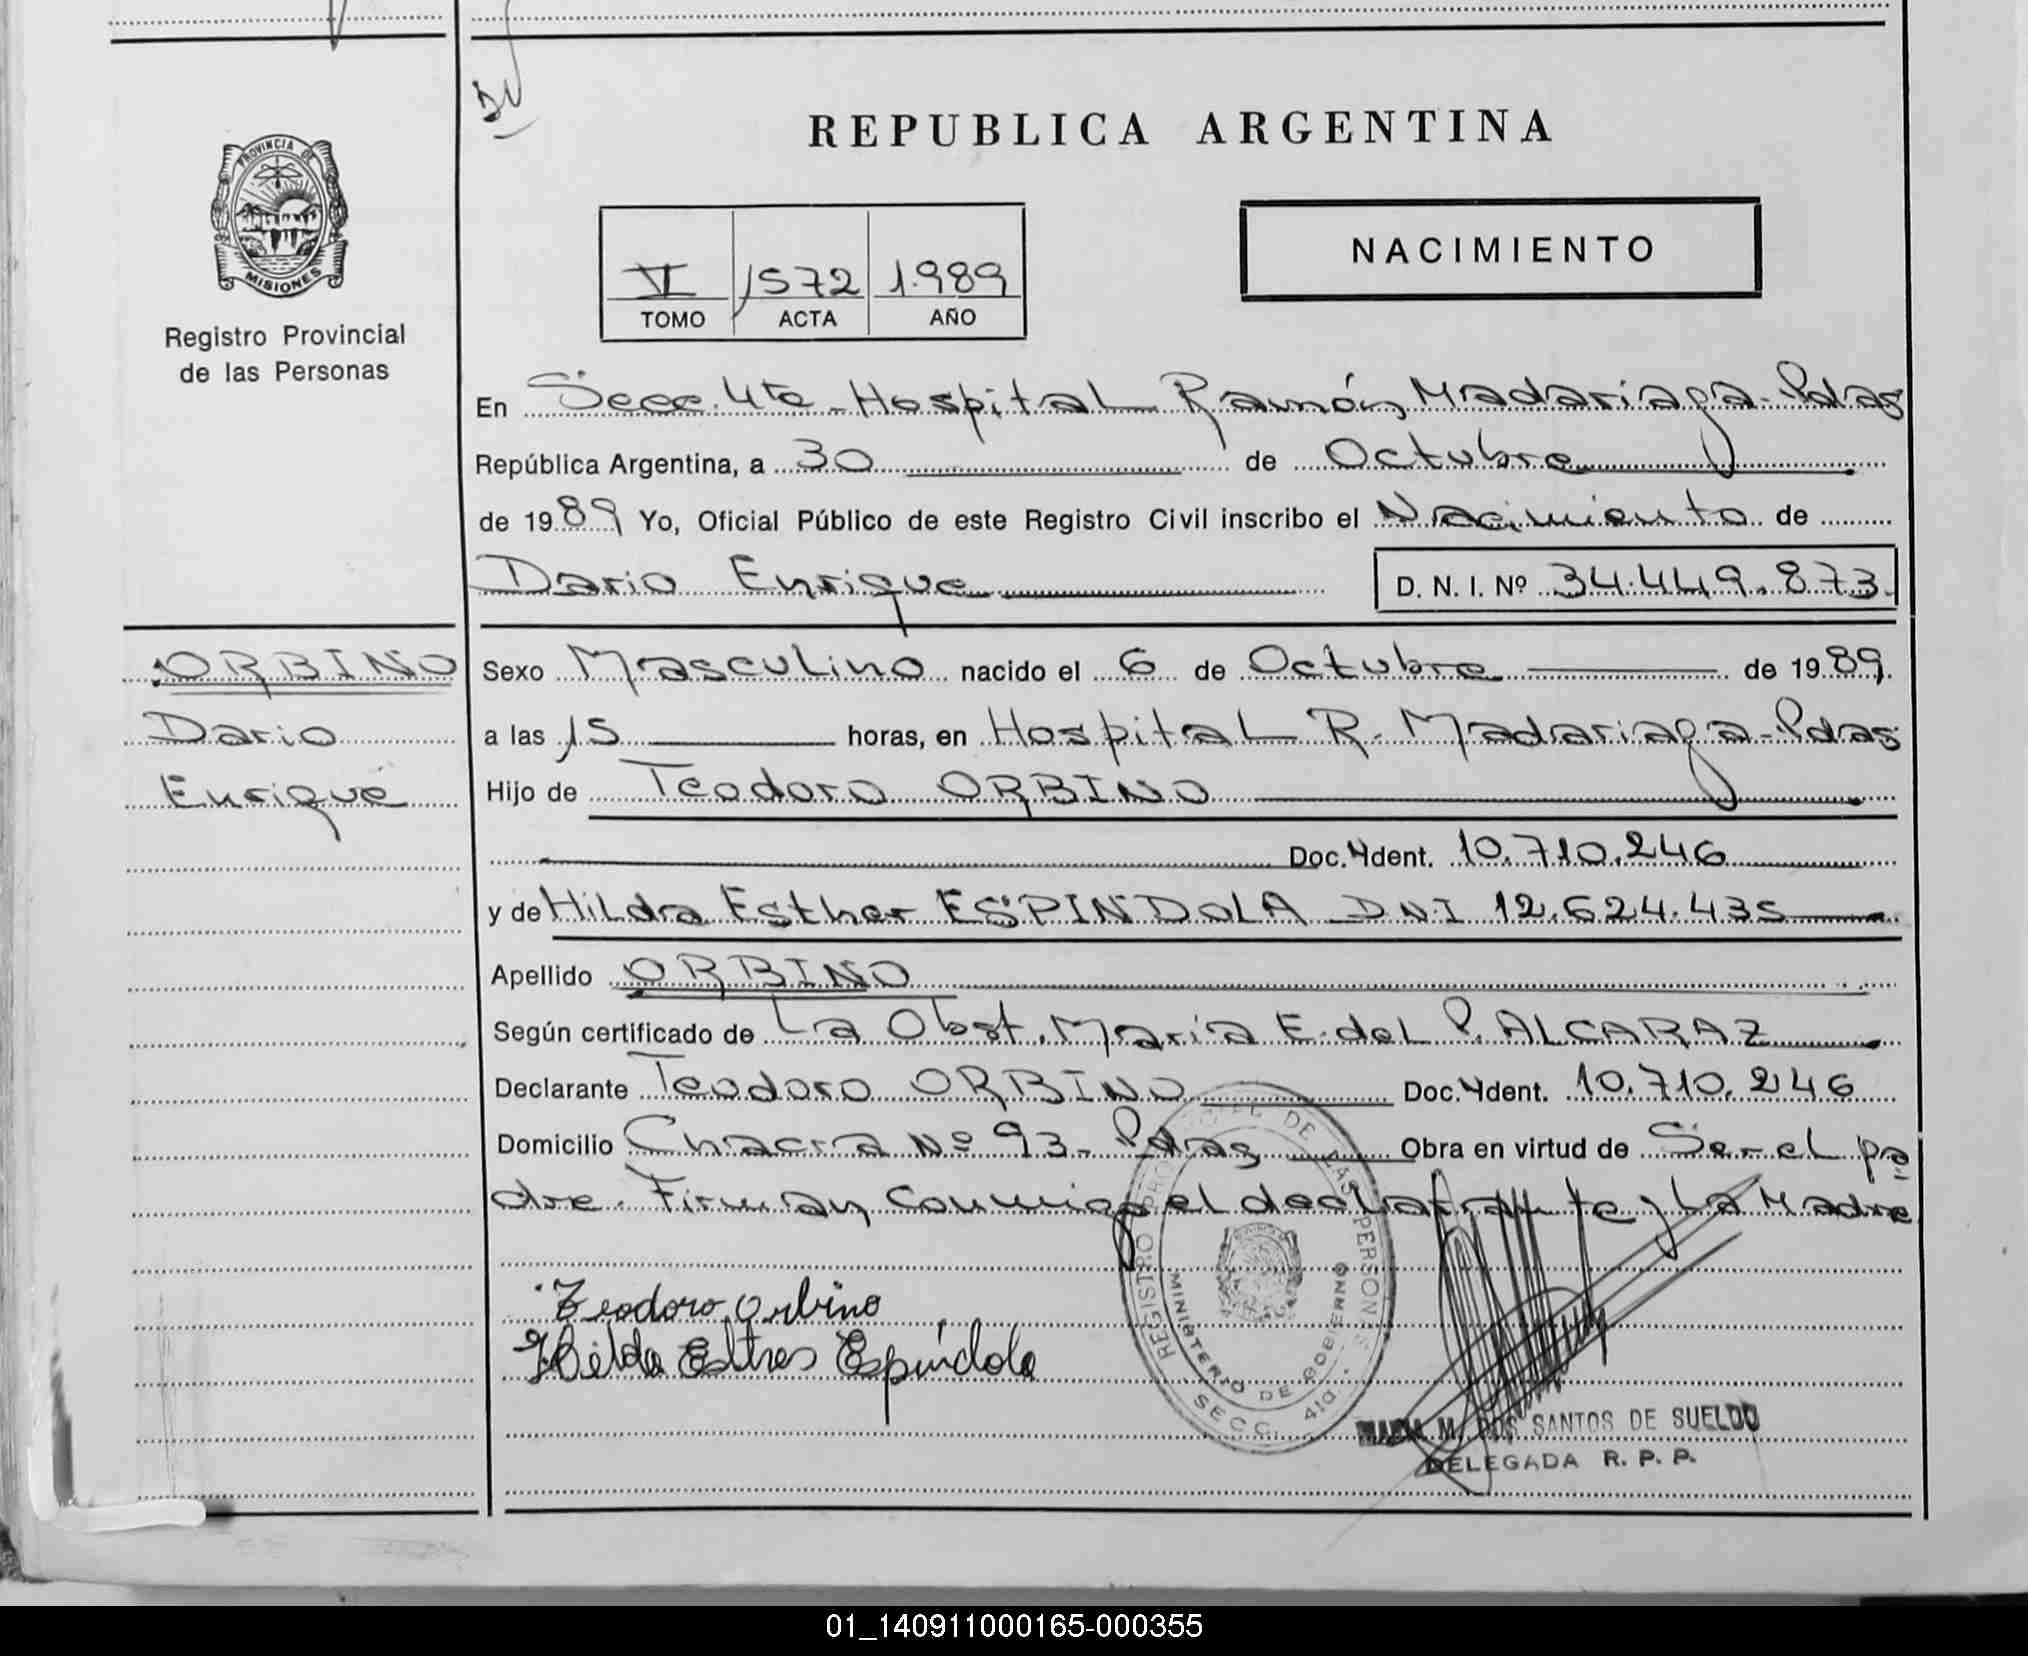 REPUBLICA ARGENTINA
PROVINCIA DE
MISIONES
Registro Provincial
de las Personas
NACIMIENTO
VI 1572 1.989
TOMO ACTA AÑO
En Secc. 4ta - Hospital Ramón Madariaga - Pdas
República Argentina, a 30 de Octubre
de 1989 Yo, Oficial Público de este Registro Civil inscribo el Nacimiento de
Dario Enrique D. N. I. Nº 34.449.873
ORBINO
Dario
Enrique
Sexo Masculino nacido el 6 de Octubre de 1989
a las 15 horas, en Hospital R. Madariaga - Pdas
Hijo de Teodoro ORBINO
Doc. Ydent. 10.710.246
y de Hilda Esther ESPINDOLA DNI 12.624.435
Apellido ORBINO
Según certificado de La Obst. María E. del P. ALCARAZ
Declarante Teodoro ORBINO Doc. Ydent. 10.710.246
Domicilio Chacra Nº 93 - Pdas Obra en virtud de Ser el pa-
dre. Firman conmigo el declarante y La Madre
Teodoro Orbino
Hilda Estres Espíndola
REGISTRO PROVINCIAL DE LAS PERSONAS
MINISTERIO DE GOBIERNO
SECC. 4ta.
M. DOS SANTOS DE SUELDO
DELEGADA R. P. P.
01_140911000165-000355